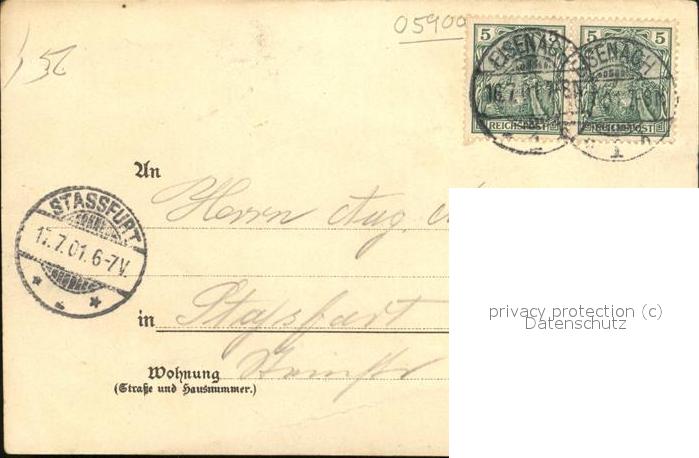 05900
5 5
EISENACH EISENACH
16.7.01
REICHSPOST REICHSPOST
1 1
An
Herrn Aug.
STASSFURT
17.7.01.6-7V.
in Stassfurt
Wohnung
(Straße und Hausnummer.)
privacy protection (c)
Datenschutz